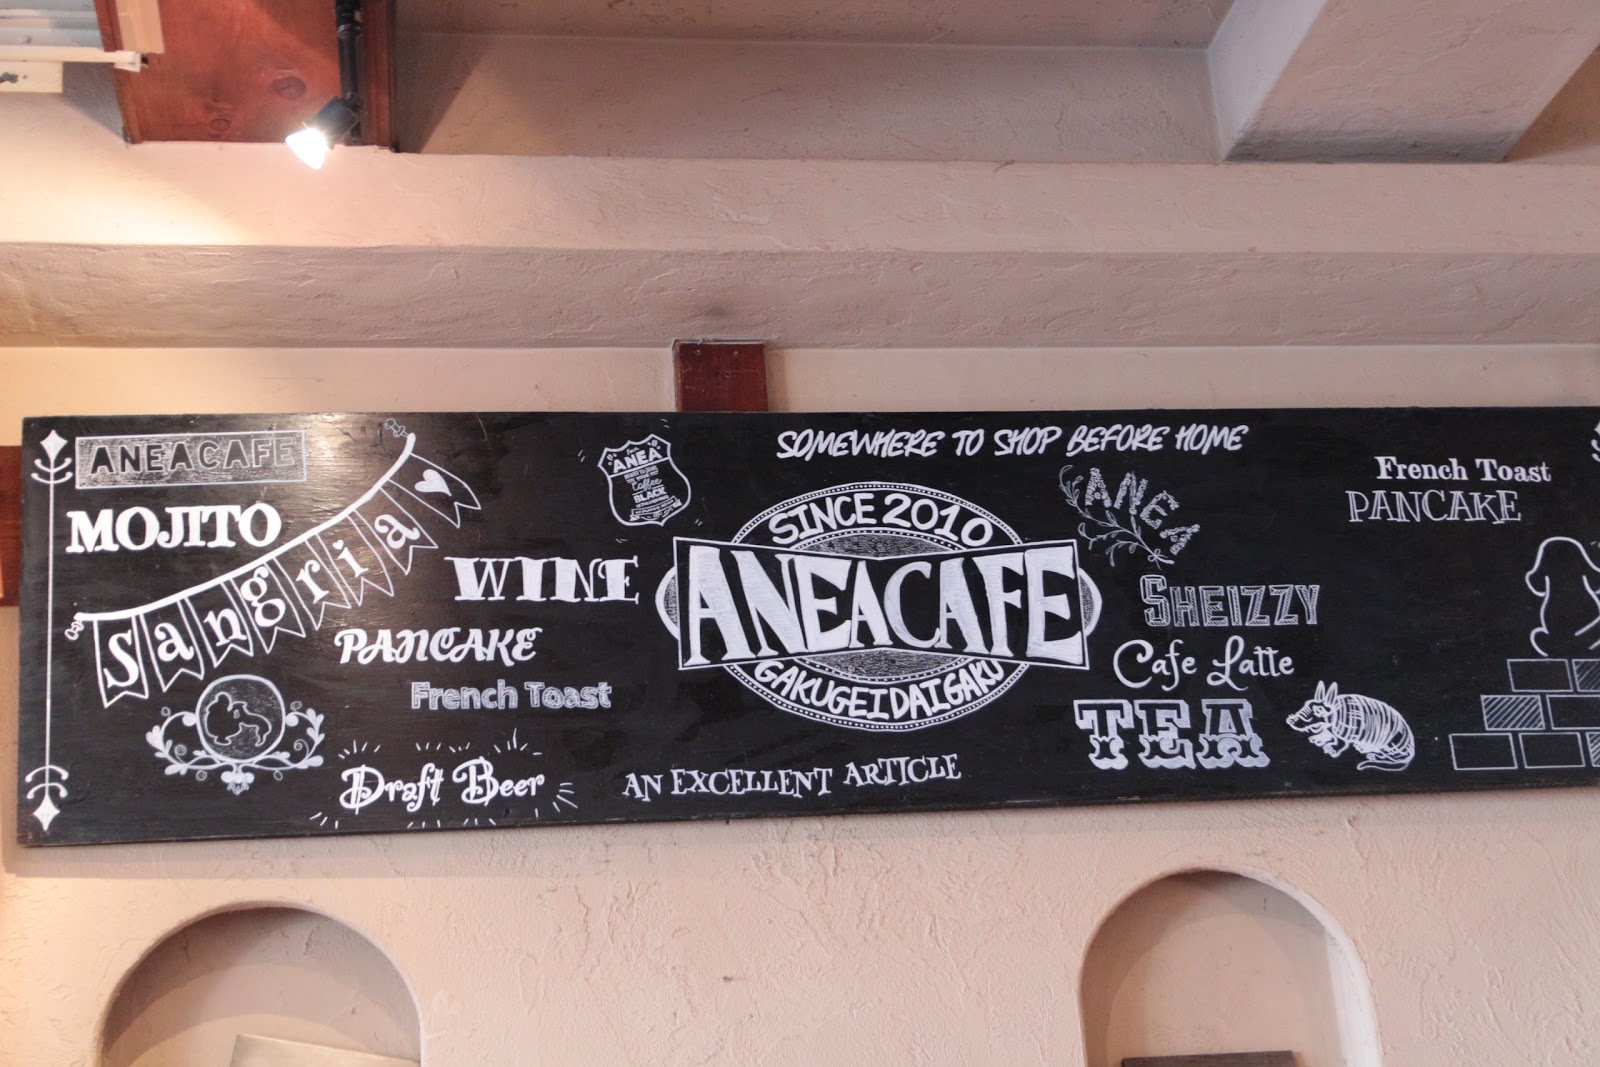 ANEACAFE
MOJITO
Sangria
WINE
PANCAKE
French Toast
Draft Beer
ANEA
Coffee
BLACK
SOMEWHERE TO SHOP BEFORE HOME
SINCE 2010
ANEACAFE
GAKUGEIDAIGAKU
AN EXCELLENT ARTICLE
ANEA
SHEIZZY
Cafe Latte
TEA
French Toast
PANCAKE